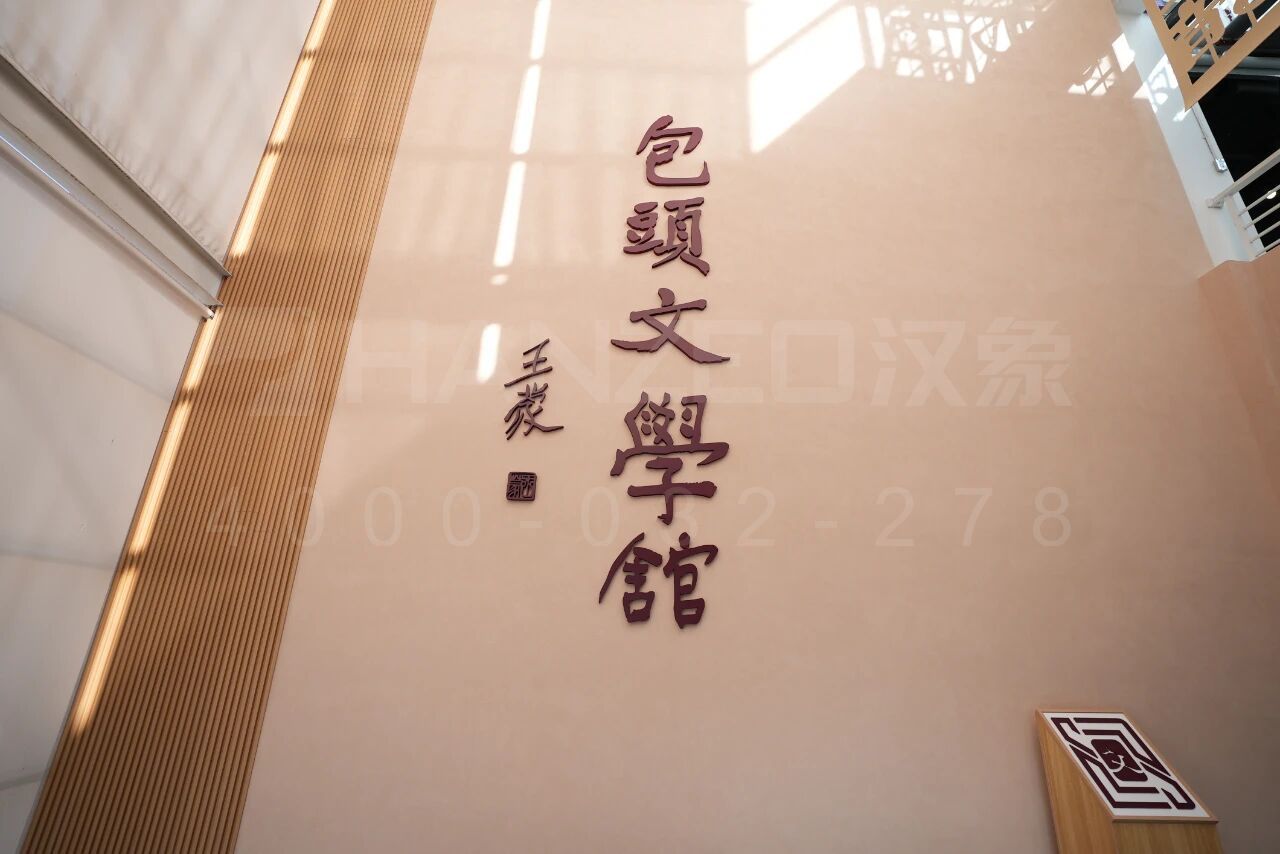 包頭文學館
王蒙
HANZEO汉象
4000-032-278
文